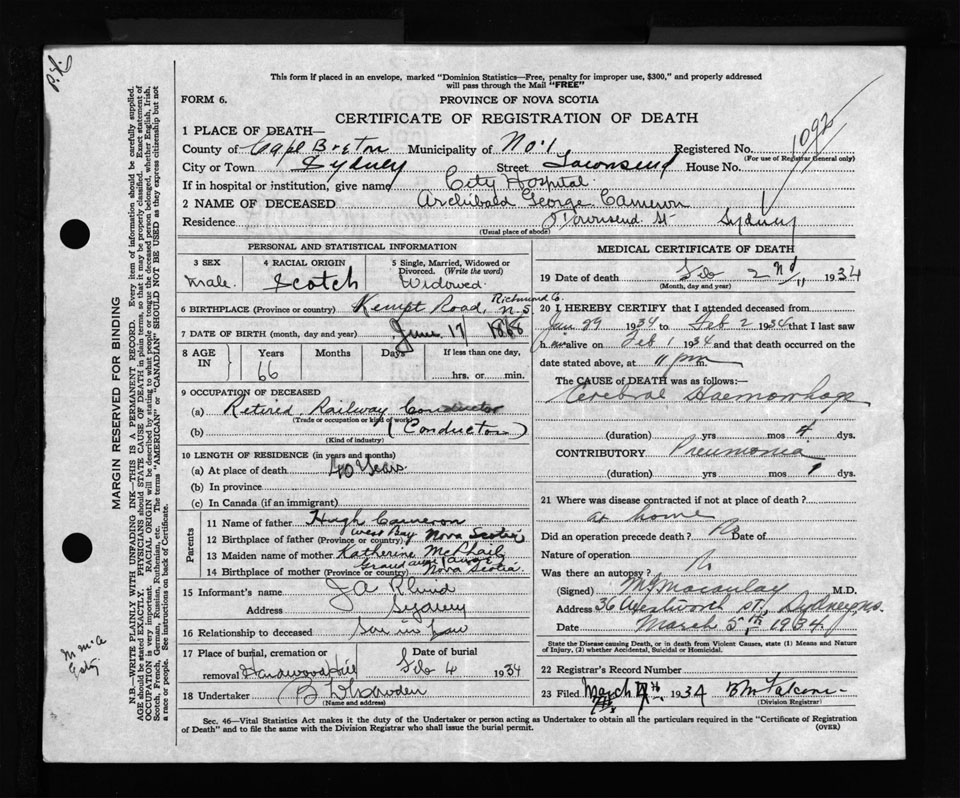 This form if placed in an envelope, marked "Dominion Statistics—Free, penalty for improper use, $300," and properly addressed
will pass through the Mail "FREE"
FORM 6.
PROVINCE OF NOVA SCOTIA
CERTIFICATE OF REGISTRATION OF DEATH
1 PLACE OF DEATH—
County of Cape Breton Municipality of No. 1 Registered No. 1092
(For use of Registrar General only)
City or Town Sydney Street Townsend House No.
If in hospital or institution, give name City Hospital
2 NAME OF DECEASED Archibald George Cameron
Residence Townsend St Sydney
(Usual place of abode)
PERSONAL AND STATISTICAL INFORMATION
3 SEX
Male
4 RACIAL ORIGIN
Scotch
5 Single, Married, Widowed or Divorced. (Write the word)
Widowed
6 BIRTHPLACE (Province or country) Kempt Road, Richmond Co. N.S
7 DATE OF BIRTH (month, day and year) June 17 1868
8 AGE IN Years Months Days If less than one day,
66 hrs. or min.
9 OCCUPATION OF DECEASED
(a) Retired Railway Conductor
(Trade or occupation or kind of work)
(b) (Conductor)
(Kind of industry)
10 LENGTH OF RESIDENCE (in years and months)
(a) At place of death 40 Years
(b) In province
(c) In Canada (if an immigrant)
Parents
11 Name of father Hugh Cameron
12 Birthplace of father (Province or country) West Bay Nova Scotia
13 Maiden name of mother Katherine McPhail
14 Birthplace of mother (Province or country) Grand Nova Scotia
15 Informant's name J A
Address Sydney
16 Relationship to deceased Son in Law
17 Place of burial, cremation or removal Hardwood Hill
Date of burial Feb 4 1934
18 Undertaker
(Name and address)
MEDICAL CERTIFICATE OF DEATH
19 Date of death Feb 2nd 1934
(Month, day and year)
20 I HEREBY CERTIFY that I attended deceased from
Jan 29 1934 to Feb 2 1934 that I last saw
him alive on Feb 1 1934 and that death occurred on the
date stated above, at 11 pm m.
The CAUSE OF DEATH was as follows:—
Cerebral Haemorrhage
(duration) yrs mos 4 dys.
CONTRIBUTORY Pneumonia
(duration) yrs mos 1 dys.
21 Where was disease contracted if not at place of death?
at home
Did an operation precede death? No Date of
Nature of operation
Was there an autopsy? No
(Signed) Macaulay M.D.
Address 36 Wentworth St, Sydney N.S.
Date March 5th 1934
State the Disease causing Death, or in death from Violent Causes, state (1) Means and Nature of Injury, (2) whether Accidental, Suicidal or Homicidal.
22 Registrar's Record Number
23 Filed March 1934
(Division Registrar)
Sec. 46—Vital Statistics Act makes it the duty of the Undertaker or person acting as Undertaker to obtain all the particulars required in the "Certificate of Registration
of Death" and to file the same with the Division Registrar who shall issue the burial permit.
(OVER)
MARGIN RESERVED FOR BINDING
N.B.—WRITE PLAINLY WITH UNFADING INK—THIS IS A PERMANENT RECORD. Every item of information should be carefully supplied.
AGE should be stated EXACTLY. PHYSICIANS should STATE CAUSE OF DEATH in plain terms, so that it may be properly classified. Exact statement of
OCCUPATION is very important. RACIAL ORIGIN will be described by stating to what people or tongue the deceased person belonged, whether English, Irish,
Scotch, French, German, Russian, Ruthenian, etc. The terms "AMERICAN" or "CANADIAN" SHOULD NOT BE USED as they express citizenship but not
a race or people. See instructions on back of Certificate.